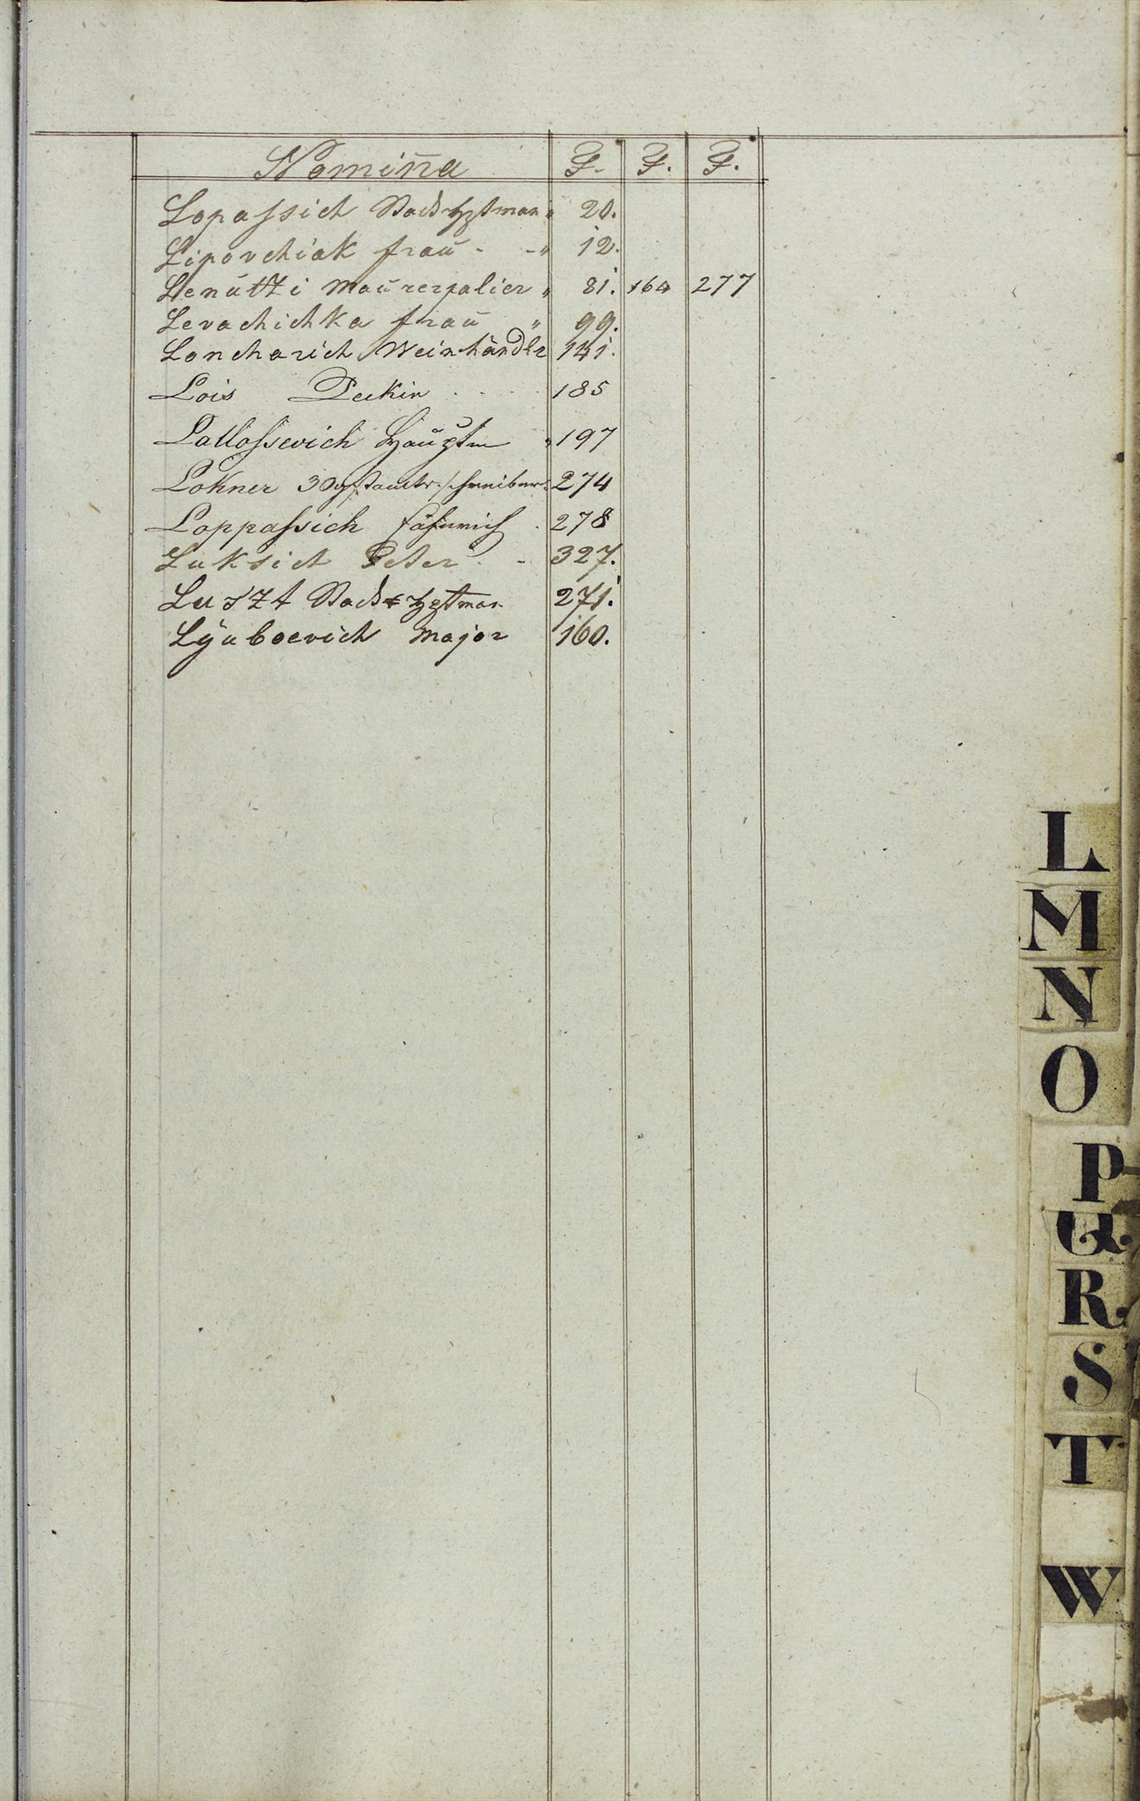 Nomina F. F. F.
Lopassich Stads Hptman " 20.
Lipovchiak frau - - " 12.
Lenutti Maurerpalier " 81. 164 277
Levachichka frau " 99.
Loncharich Weinhändlr 141.
Lois 185
Lallossevich Hauptm " 197
Lokner 30gst 274
Loppassich Fähnrich . 278
Luksich Peter - - 327.
Luszt Stads Hptman 271.
Lÿuboevich Major 160.
L
M
N
O
P
Q
R
S
T
W